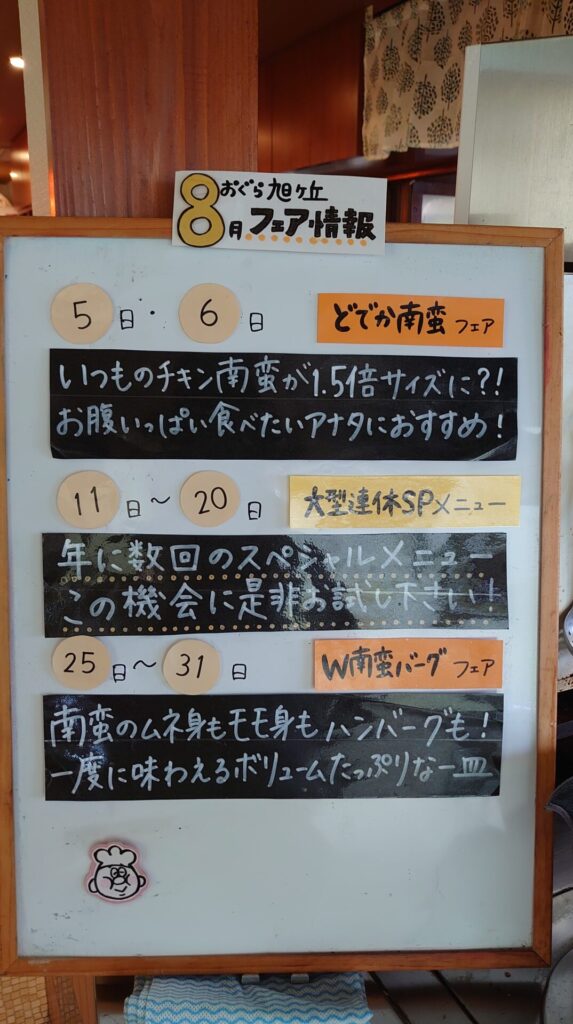 おぐら旭ヶ丘
8月フェア情報
5日・6日 どでか南蛮フェア
いつものチキン南蛮が1.5倍サイズに?!
お腹いっぱい食べたいアナタにおすすめ!
11日～20日 大型連休SPメニュー
年に数回のスペシャルメニュー
この機会に是非お試し下さい!
25日～31日 W南蛮バーグフェア
南蛮のムネ身もモモ身もハンバーグも!
一度に味わえるボリュームたっぷりな一皿